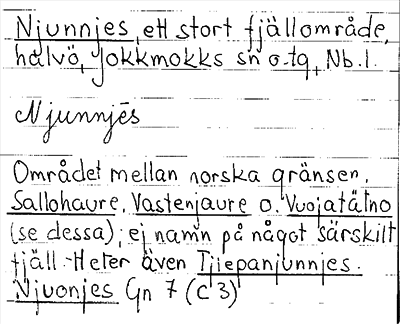 Njunnjes, ett stort fjällområde,
halvö, Jokkmokks sn o. tg, Nb. l.
Njunnjės
Området mellan norska gränsen,
Sallohaure, Vastenjaure o. Vuojatätno
(se dessa); ej namn på något särskilt
fjäll. Heter även Tjiepanjunnjes.
Njuonjes Gn 7 (C 3)